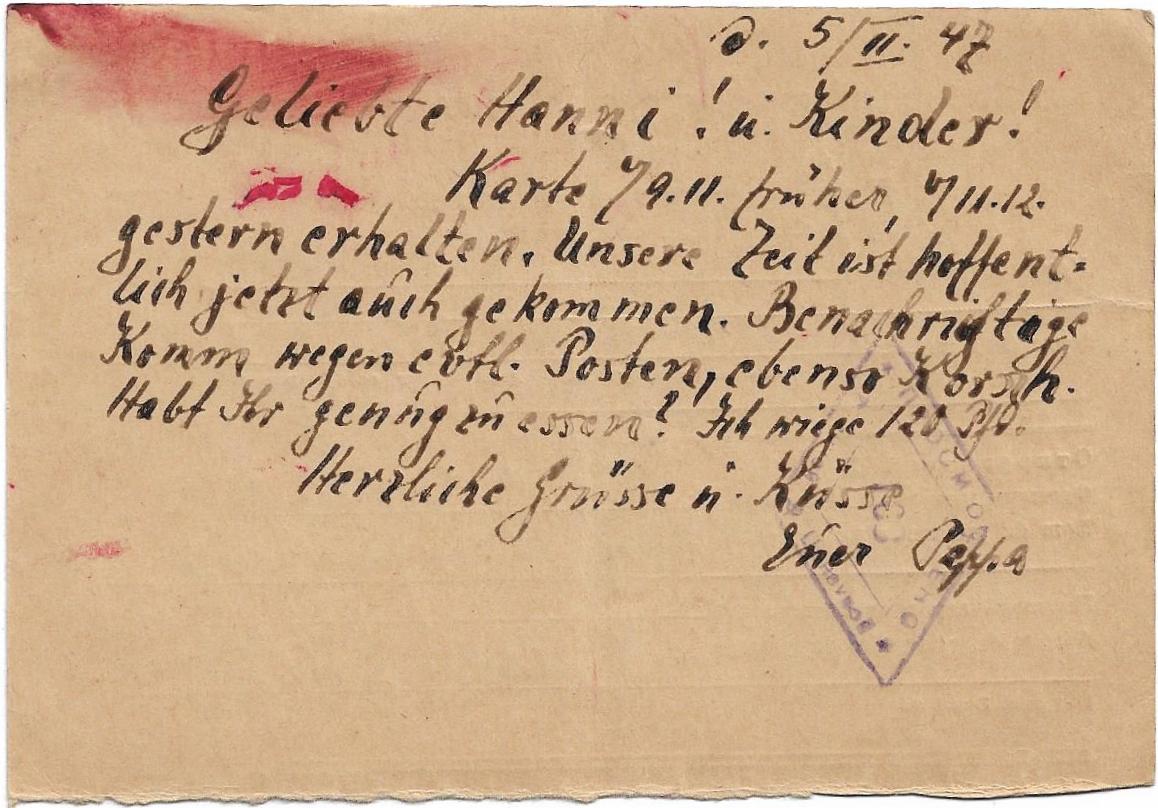 d. 5/II. 47
Geliebte Hanni! u. Kinder!
Karte v/9.11. früher, v/11.12.
gestern erhalten. Unsere Zeit ist hoffent-
lich jetzt auch gekommen. Benachrichtige
Komm wegen evtl. Posten, ebenso Korsch.
Habt Ihr genug zu essen? Ich wiege 120 Pfd.
Herzliche Grüsse u. Küsse
Euer